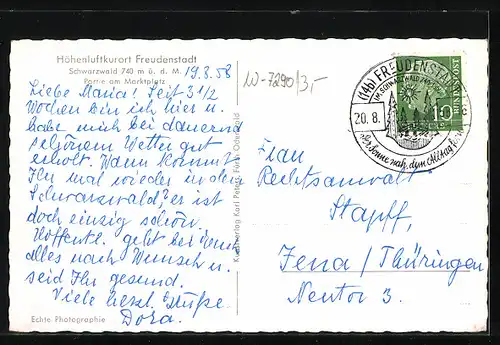 Höhenluftkurort Freudenstadt
Schwarzwald 740 m ü. d. M.
Partie am Marktplatz
19.8.58
Liebe Maria! Seit 3 1/2
Wochen bin ich hier u.
habe mich bei dauernd
schönem Wetter gut
erholt. Wann kommt
Ihr mal wieder in den
Schwarzwald, er ist
doch einzig schön.
Hoffentl. geht bei Euch
alles nach Wunsch u.
seid Ihr gesund.
Viele herzl. Grüße
Dora.
Echte Photographie
Karl Peters
W-7290/3,-
(14b) FREUDENSTADT
IM SCHWARZWALD
20.8.
der Sonne nah, dem Alltag fern
10
BUNDESPOST
Frau
Rechtsanwalt
Stapff,
Jena/Thüringen
Neutor 3.